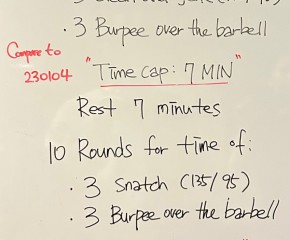 · 3 Burpee over the barbell
Compare to
230104
"Time cap: 7 MIN"
Rest 7 minutes
10 Rounds for time of:
· 3 Snatch (135/95)
· 3 Burpee over the barbell